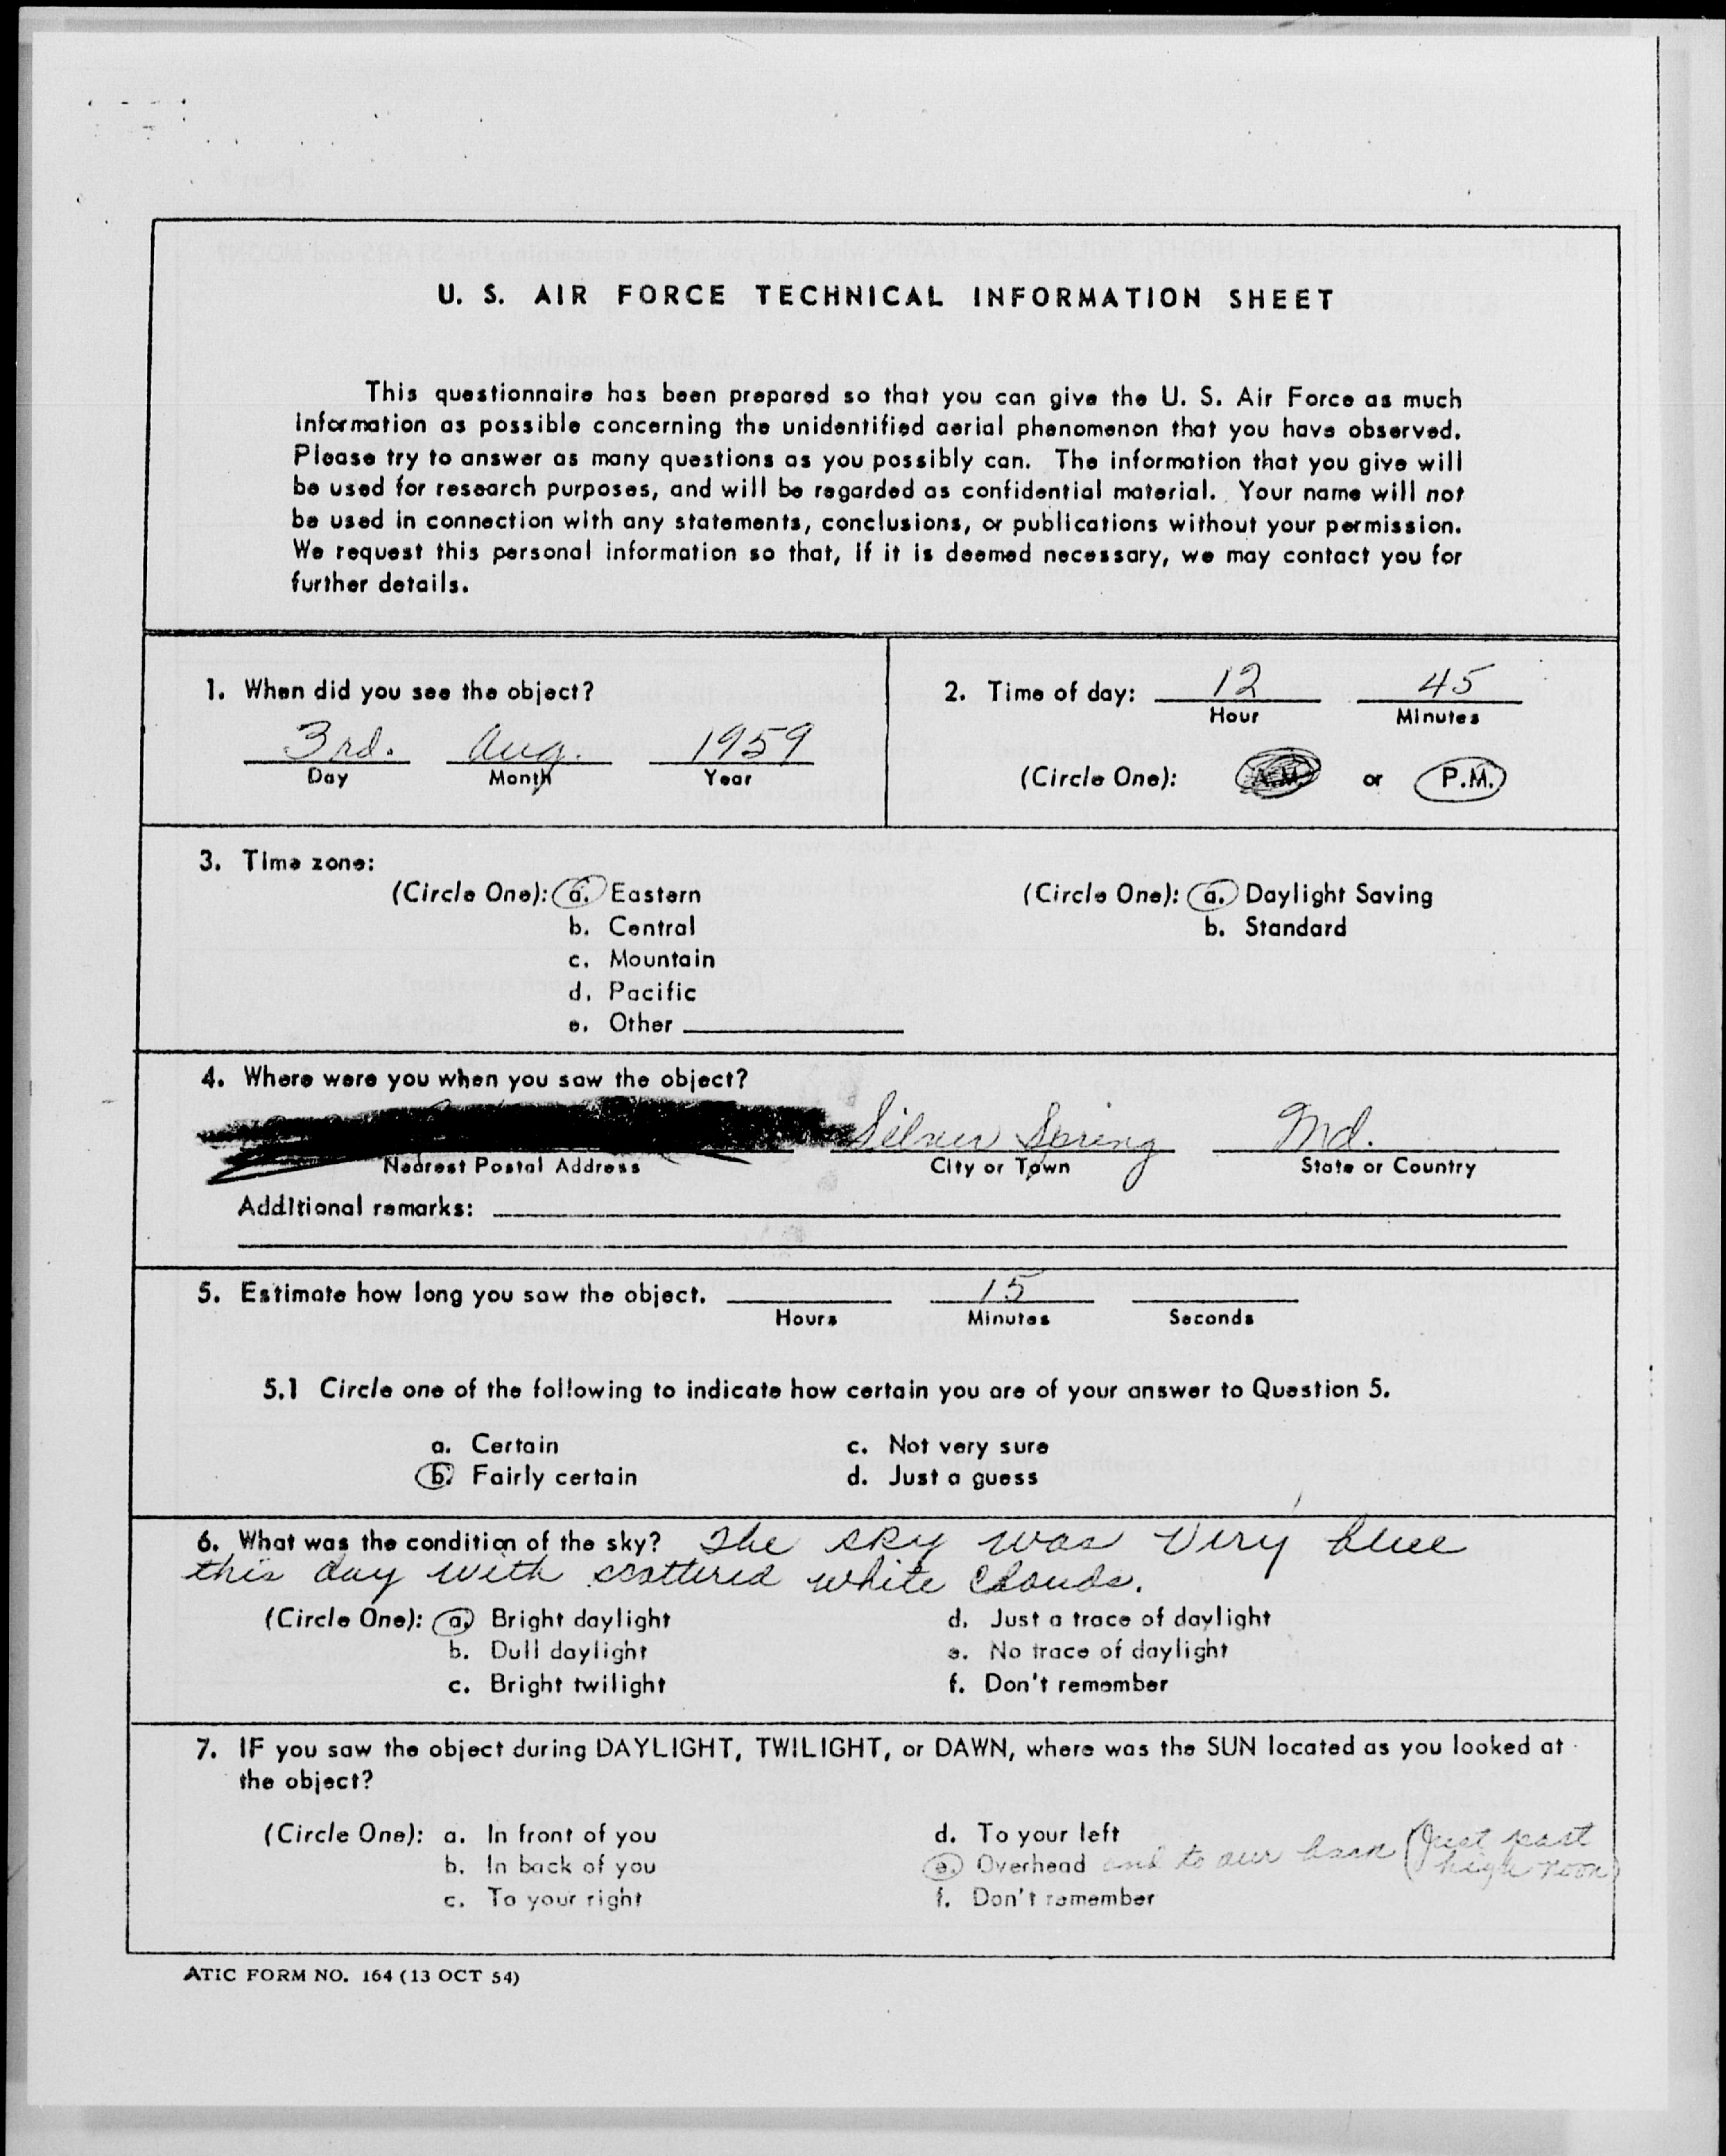 U. S. AIR FORCE TECHNICAL INFORMATION SHEET
This questionnaire has been prepared so that you can give the U. S. Air Force as much
information as possible concerning the unidentified aerial phenomenon that you have observed.
Please try to answer as many questions as you possibly can. The information that you give will
be used for research purposes, and will be regarded as confidential material. Your name will not
be used in connection with any statements, conclusions, or publications without your permission.
We request this personal information so that, if it is deemed necessary, we may contact you for
further details.
1. When did you see the object?
3rd. Aug. 1959
Day Month Year
2. Time of day: 12 45
Hour Minutes
(Circle One): A.M. or P.M.
3. Time zone:
(Circle One): a. Eastern
b. Central
c. Mountain
d. Pacific
e. Other
(Circle One): a. Daylight Saving
b. Standard
4. Where were you when you saw the object?
Silver Spring Md.
Nearest Postal Address City or Town State or Country
Additional remarks:
5. Estimate how long you saw the object. 15
Hours Minutes Seconds
5.1 Circle one of the following to indicate how certain you are of your answer to Question 5.
a. Certain
b. Fairly certain
c. Not very sure
d. Just a guess
6. What was the condition of the sky? The sky was very blue
this day with scattered white clouds.
(Circle One): a. Bright daylight
b. Dull daylight
c. Bright twilight
d. Just a trace of daylight
e. No trace of daylight
f. Don't remember
7. IF you saw the object during DAYLIGHT, TWILIGHT, or DAWN, where was the SUN located as you looked at
the object?
(Circle One): a. In front of you
b. In back of you
c. To your right
d. To your left
e. Overhead and to our back (Just past
high noon)
f. Don't remember
ATIC FORM NO. 164 (13 OCT 54)